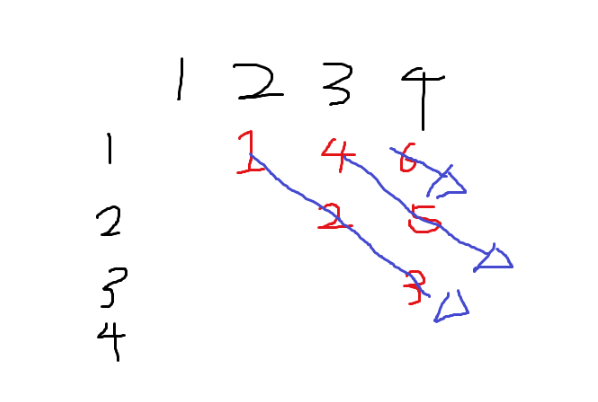 1 2 3 4
1 1 4 6
2 2 5
3 3
4